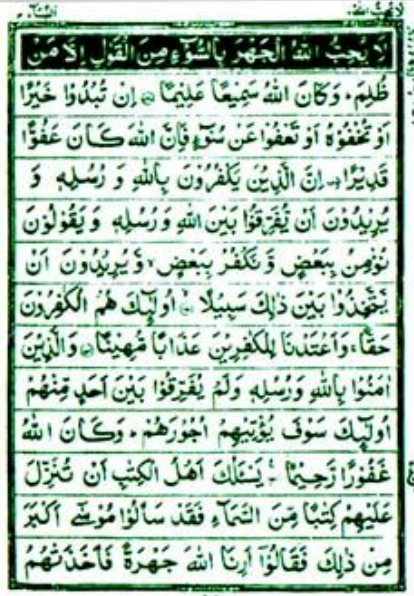 لَا یُحِبُّ اللهُ النِّسَآءِ ٤
لَا یُحِبُّ اللهُ الْجَهْرَ بِالسُّوْٓءِ مِنَ الْقَوْلِ اِلَّا مَنْ
ظُلِمَ ؕ وَكَانَ اللهُ سَمِیْعًا عَلِیْمًا ۝ اِنْ تُبْدُوْا خَیْرًا
اَوْ تُخْفُوْهُ اَوْ تَعْفُوْا عَنْ سُوْٓءٍ فَاِنَّ اللهَ كَانَ عَفُوًّا
قَدِیْرًا ۝ اِنَّ الَّذِیْنَ یَكْفُرُوْنَ بِاللهِ وَ رُسُلِهٖ وَ
یُرِیْدُوْنَ اَنْ یُّفَرِّقُوْا بَیْنَ اللهِ وَ رُسُلِهٖ وَ یَقُوْلُوْنَ
نُؤْمِنُ بِبَعْضٍ وَّ نَكْفُرُ بِبَعْضٍ ۙ وَّ یُرِیْدُوْنَ اَنْ
یَّتَّخِذُوْا بَیْنَ ذٰلِكَ سَبِیْلًا ۝ اُولٰٓىِٕكَ هُمُ الْكٰفِرُوْنَ
حَقًّا ۚ وَاَعْتَدْنَا لِلْكٰفِرِیْنَ عَذَابًا مُّهِیْنًا ۝ وَالَّذِیْنَ
اٰمَنُوْا بِاللهِ وَرُسُلِهٖ وَلَمْ یُفَرِّقُوْا بَیْنَ اَحَدٍ مِّنْهُمْ
اُولٰٓىِٕكَ سَوْفَ یُؤْتِیْهِمْ اُجُوْرَهُمْ ؕ وَكَانَ اللهُ
غَفُوْرًا رَّحِیْمًا ۝ یَسْـَٔلُكَ اَهْلُ الْكِتٰبِ اَنْ تُنَزِّلَ
عَلَیْهِمْ كِتٰبًا مِّنَ السَّمَآءِ فَقَدْ سَاَلُوْا مُوْسٰۤى اَكْبَرَ
مِنْ ذٰلِكَ فَقَالُوْٓا اَرِنَا اللهَ جَهْرَةً فَاَخَذَتْهُمُ